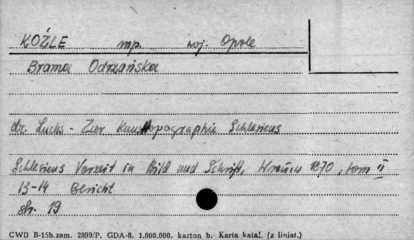 KOŹLE mp. woj. Opole
Brama Odrzańska
dr. Luchs - Zur Kunsttopographie Schlesiens
Schlesiens Vorzeit in Bild und Schrift, 1870, tom II
13-14 Bericht
str. 19
CWD B-15b.zam. 2899/P. GDA-8. 1.000.000. karton b. Karta katal. (z liniat.)